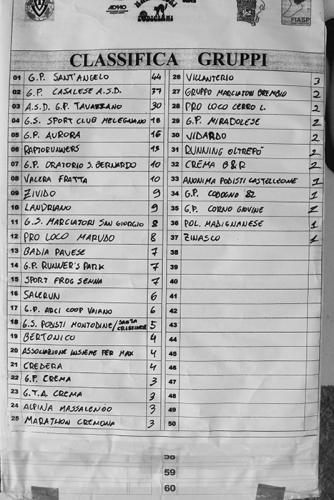 LODIGIANI
FIASP
CLASSIFICA GRUPPI
01 G.P. SANT'ANGELO 44
02 G.P. CASALESE A.S.D. 37
03 A.S.D. G.P. TAVAZZANO 30
04 G.S. SPORT CLUB MELEGNANO 18
05 G.P. AURORA 16
06 RAPTORUNNERS 13
07 G.P. ORATORIO S. BERNARDO 10
08 VALERA FRATTA 10
09 ZIVIDO 9
10 LANDRIANO 9
11 G.S. MARCIATORI SAN GIORGIO 8
12 PRO LOCO MARUDO 8
13 BADIA PAVESE 7
14 G.P. RUNNER'S PARK 7
15 SPORT FROG SENNA 7
16 SALERUN 6
17 G.P. ARCI COOP VAIANO 6
18 G.S. PODISTI MONTODINE/SANTA CRISTINA 5
19 BERTONICO 4
20 ASSOCIAZIONE INSIEME PER MAX 4
21 CREDERA 4
22 G.P. CREMA 3
23 G.T.A. CREMA 3
24 ALPINA MASSALENGO 3
25 MARATHON CREMONA 3
26 VILLANTERIO 3
27 GRUPPO MARCIATORI BREMBIO 2
28 PRO LOCO CERRO L. 2
29 G.P. MIRADOLESE 2
30 VIDARDO 2
31 RUNNING OLTREPÒ 2
32 CREMA B&R 2
33 ANONIMA PODISTI CASTELLEONE 1
34 G.P. CODOGNO 82 1
35 G.P. CORNO GIOVINE 1
36 POL. MADIGNANESE 1
37 ZINASCO 1
38
39
40
41
42
43
44
45
46
47
48
49
50
58
59
60